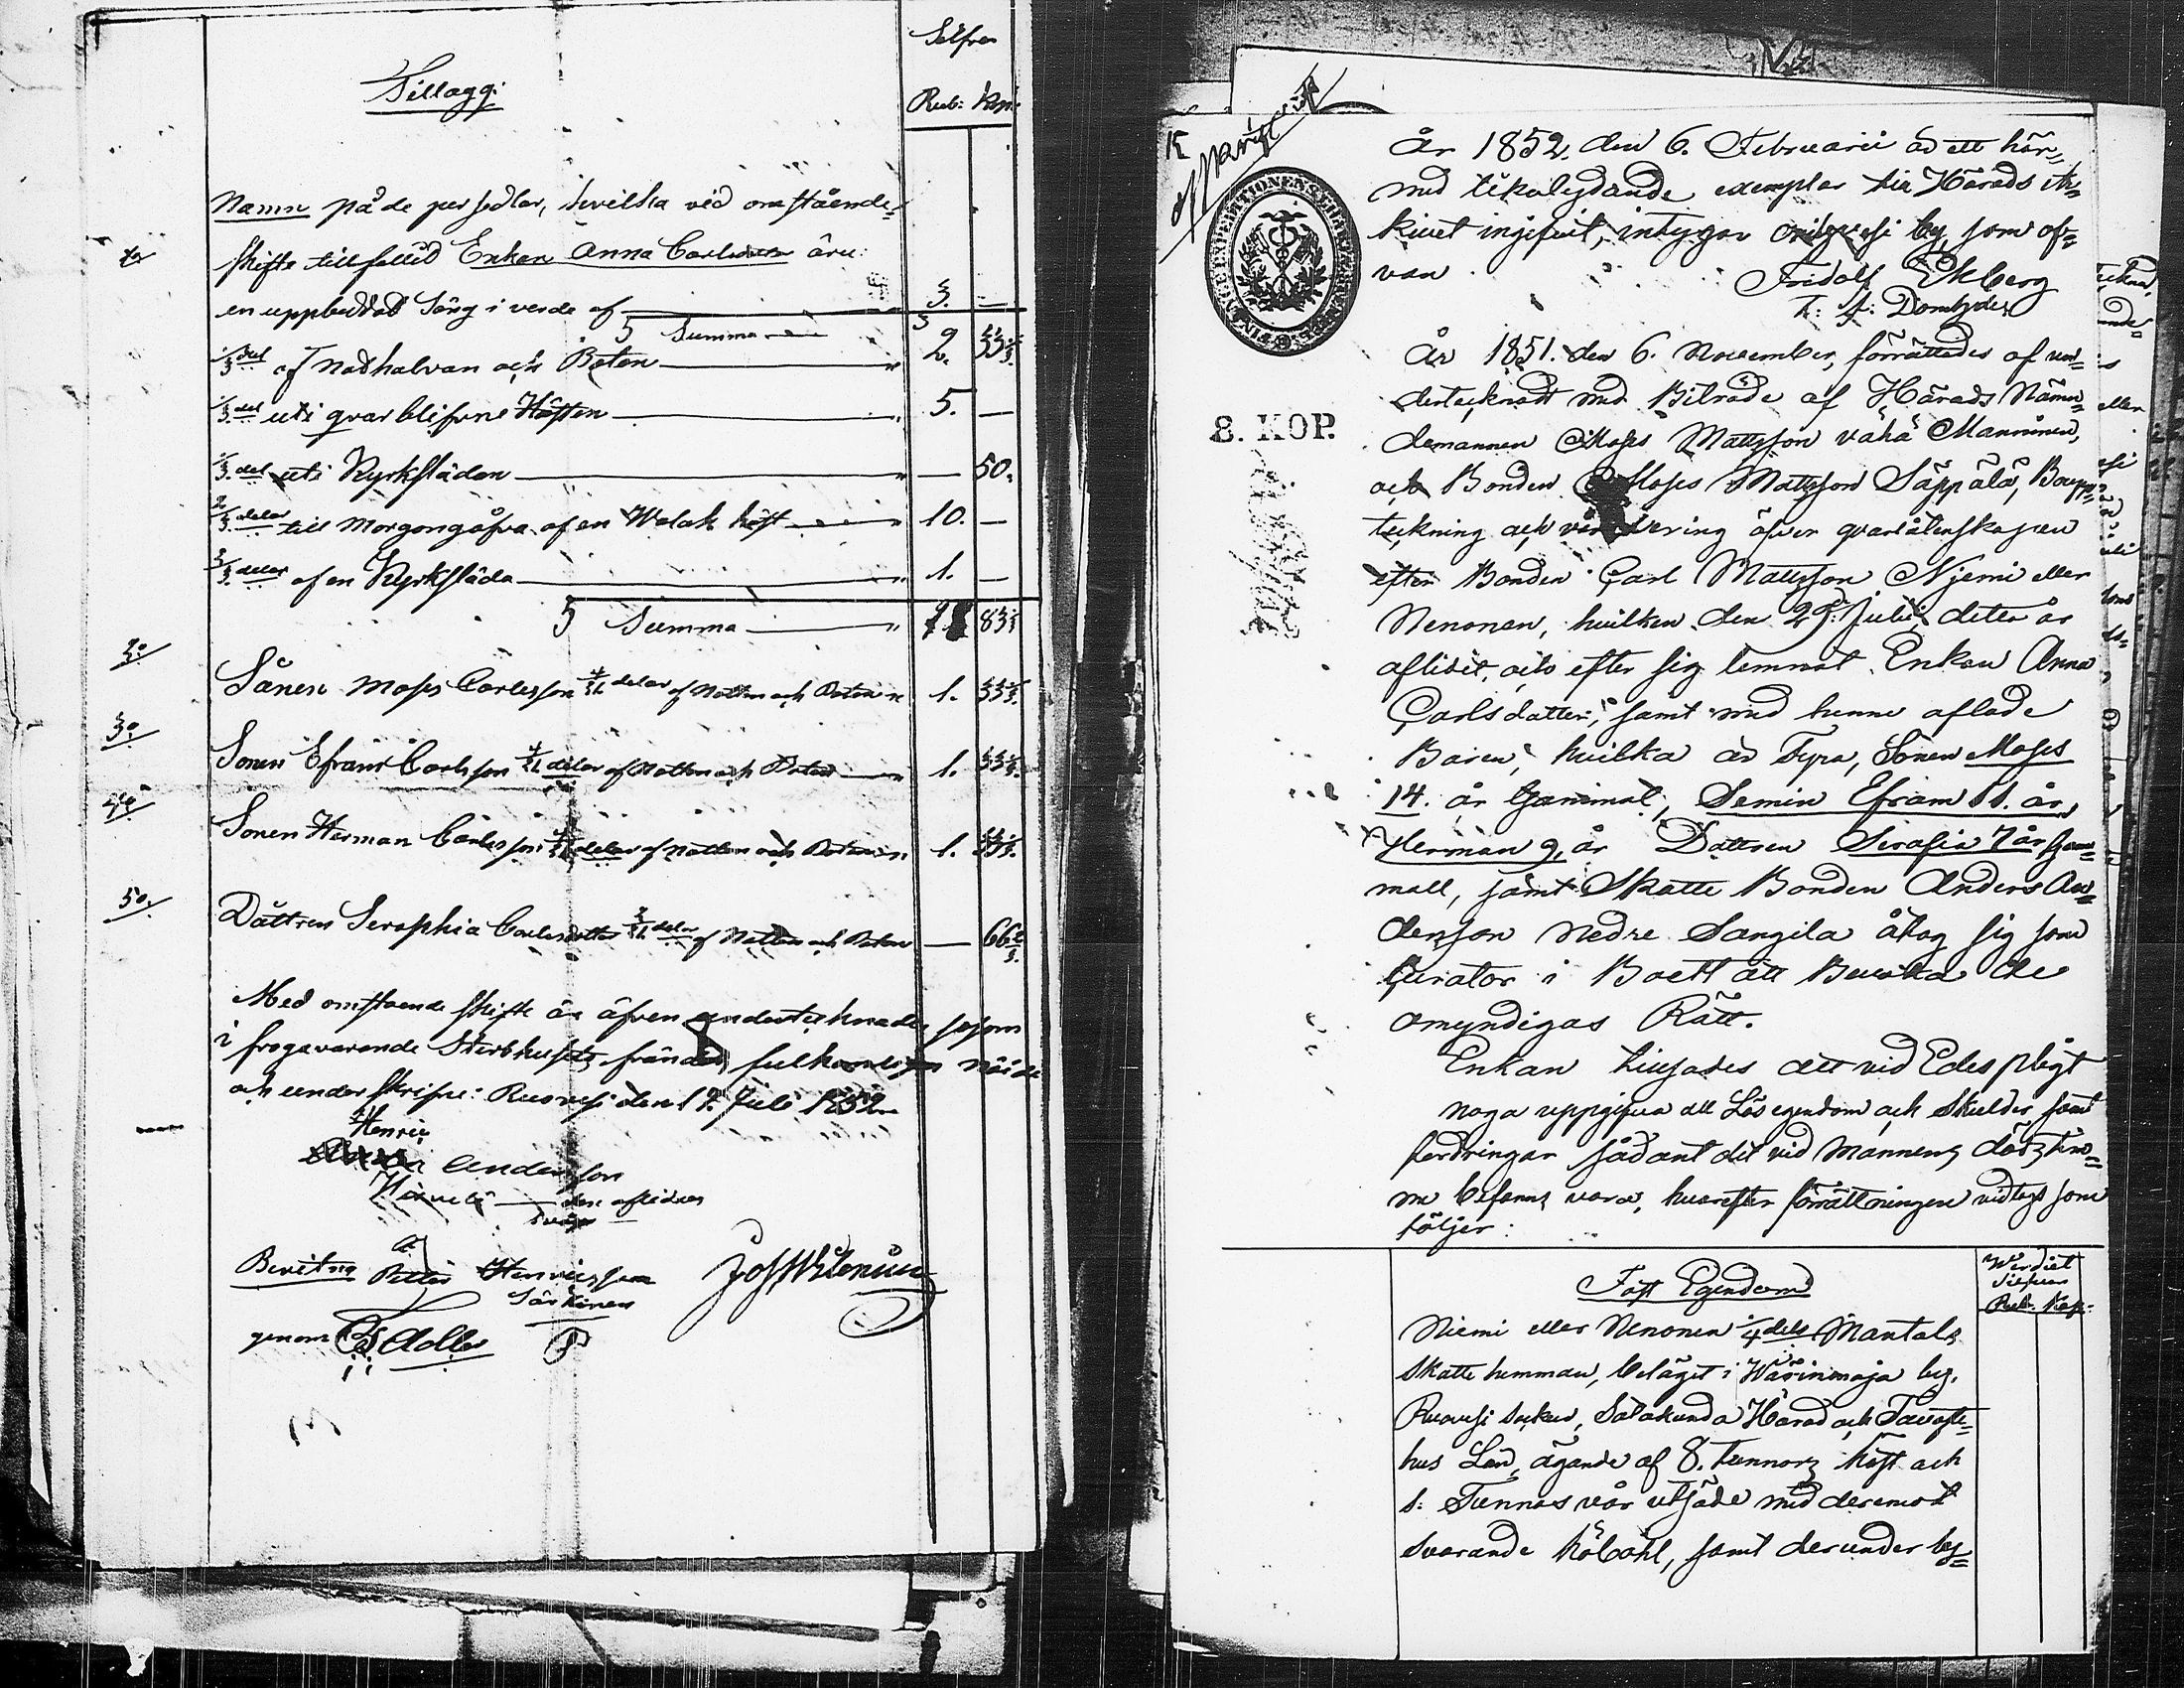 Tillägg:
Silfver
Rub: Kop:
Namn på de persedlar, hvilka vid omstående
skifte tillfallid Enkan Anna Carlsdotter äro:
en uppbäddad Säng i värde af 3. —
S Summa 3
1/3 del af Nothalvan och Båten 2. 33 1/3.
1/3 del uti qvarblifvne Hästen 5. —
1/3 del uti Kyrksläden — 50.
2/3 delar till Morgongåfva af en Walak häst 10. —
2/3 delar af en Kyrksläda 1. —
S Summa 83 1/3
2:o
Sånen Moses Carlsson delar af Notten och Båten 1. 33 1/3.
3:o
Sonen Efraim Carlsson delar af Notten och Båten 1. 33 1/3.
4:o
Sonen Herman Carlsson delar af Notten och Båten 1. 33 1/3.
5:o
Dåttren Seraphia Carlsdotter delar af Notten och Båten — 66 2/3.
Med omstående skifte är äfven undertecknade, såsom
i frogavarande Sterbhusets fränder fulkomligen nöide
och underskrifve: Ruovesi den 17. Juli 1852
Henric
Andersson
den aflidnes
svåger
Bevitna Petter Henricsson
Särkinen
genom Adler
K
År 1852. den 6. Februarii är ett här-
med likalydande exemplar till Härads Ar-
kivet ingifvit, intygar by, som of-
van.
Fridolf Ekberg
T: f: Domhafvde
FINLANDS EXPEDITIONENS CHARTÆ
8. KOP.
År 1851. den 6. November, förrättades af un-
dertecknadt med Biträde af Härads Näm-
demannen Moses Mattsson vähä Manninen,
och Bonden Moses Mattsson Säppälä, Boupp-
teckning och värdering öfver qvarlåtenskapen
efter Bonden Carl Mattsson Njemi eller
Nenonen, hvilken den 29. Julii, detta år
aflidit, och efter sig lemnat Enkan Anna
Carlsdotter, samt med henne aflade
Baren, hvilka är Fyra, Sonen Moses
14. år Gammal, Semin Efraim 11. år,
Herman 9. år Dottren Serafia 7 år gam-
mall, samt Skatte Bonden Anders An-
dersson Nedre Sangila åtog sig som
Curator i Boett att Bevaka de
omyndigas Rätt.
Enkan tillsades att vid Edes pligt
noga uppgifva all Lös egendom och Skulder samt
fordringar sådant det vid mannens dödstim-
me befanns vara, hvarefter förrättningen vidtogs som
följer:
Fast Egendom
Wärdiet
Silfver
Rub. Kop:
Niemi eller Nenonen 1/4 dels Mantals
skatte hemman, beläget i Wäärinmaja by,
Ruovesi socken, Satakunda Härad och Tavaste-
hus Län, ägande af 8. tunnors höst och
1: Tunnas vår utsäde med deremot
svarande höbohl, samt derunder ly-